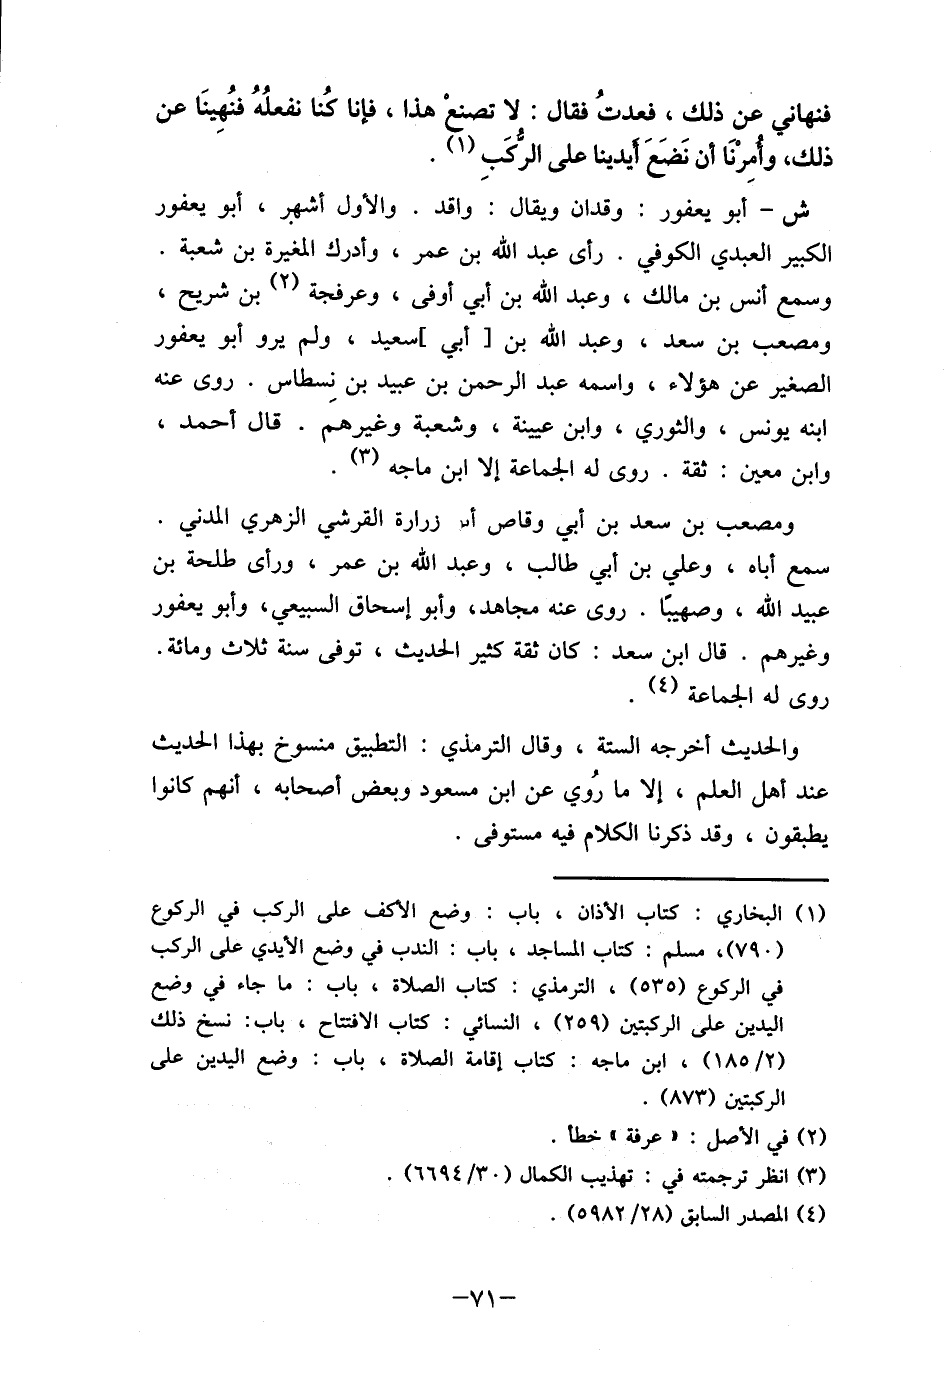 فنهاني عن ذلك ، فعدتُ فقال : لا تصنعْ هذا ، فإنا كُنا نفعلُهُ فنُهِينَا عن
ذلك، وأُمِرْنَا أن نَضَعَ أيدينا على الرُّكَبِ (١) .
ش - أبو يعفور : وقدان ويقال : واقد . والأول أشهر ، أبو يعفور
الكبير العبدي الكوفي . رأى عبد الله بن عمر ، وأدرك المغيرة بن شعبة .
وسمع أنس بن مالك ، وعبد الله بن أبي أوفى ، وعرفجة (٢) بن شريح ،
ومصعب بن سعد ، وعبد الله بن [ أبي ]سعيد ، ولم يرو أبو يعفور
الصغير عن هؤلاء ، واسمه عبد الرحمن بن عبيد بن نِسطاس . روى عنه
ابنه يونس ، والثوري ، وابن عيينة ، وشعبة وغيرهم . قال أحمد ،
وابن معين : ثقة . روى له الجماعة إلا ابن ماجه (٣) .
ومصعب بن سعد بن أبي وقاص زرارة القرشي الزهري المدني .
سمع أباه ، وعلي بن أبي طالب ، وعبد الله بن عمر ، ورأى طلحة بن
عبيد الله ، وصهيبًا . روى عنه مجاهد، وأبو إسحاق السبيعي، وأبو يعفور
وغيرهم . قال ابن سعد : كان ثقة كثير الحديث ، توفى سنة ثلاث ومائة.
روى له الجماعة (٤) .
والحديث أخرجه الستة ، وقال الترمذي : التطبيق منسوخ بهذا الحديث
عند أهل العلم ، إلا ما رُوي عن ابن مسعود وبعض أصحابه ، أنهم كانوا
يطبقون ، وقد ذكرنا الكلام فيه مستوفى .
(١) البخاري : كتاب الأذان ، باب : وضع الأكف على الركب في الركوع
(٧٩٠)، مسلم : كتاب المساجد ، باب : الندب في وضع الأيدي على الركب
في الركوع (٥٣٥) ، الترمذي : كتاب الصلاة ، باب : ما جاء في وضع
اليدين على الركبتين (٢٥٩) ، النسائي : كتاب الافتتاح ، باب: نسخ ذلك
(١٨٥/٢) ، ابن ماجه : كتاب إقامة الصلاة ، باب : وضع اليدين على
الركبتين (٨٧٣) .
(٢) في الأصل : « عرفة » خطأ .
(٣) انظر ترجمته في : تهذيب الكمال (٦٦٩٤/٣٠) .
(٤) المصدر السابق (٥٩٨٢/٢٨) .
-٧١-